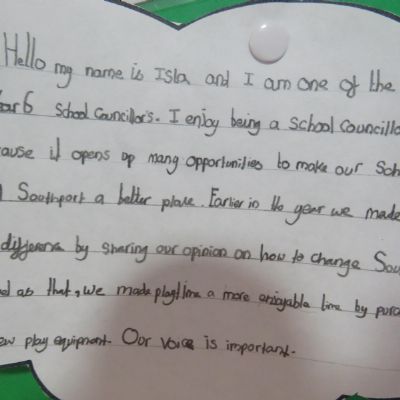 Hello my name is Isla and I am one of the
ear 6 School Councillors. I enjoy being a School Councillo
ause it opens up many opportunities to make our Sch
Southport a better place. Earlier in the year we made
difference by sharing our opinion on how to change Sou
as that, we made playtime a more enjoyable time by purc
ew play equipment. Our voice is important.